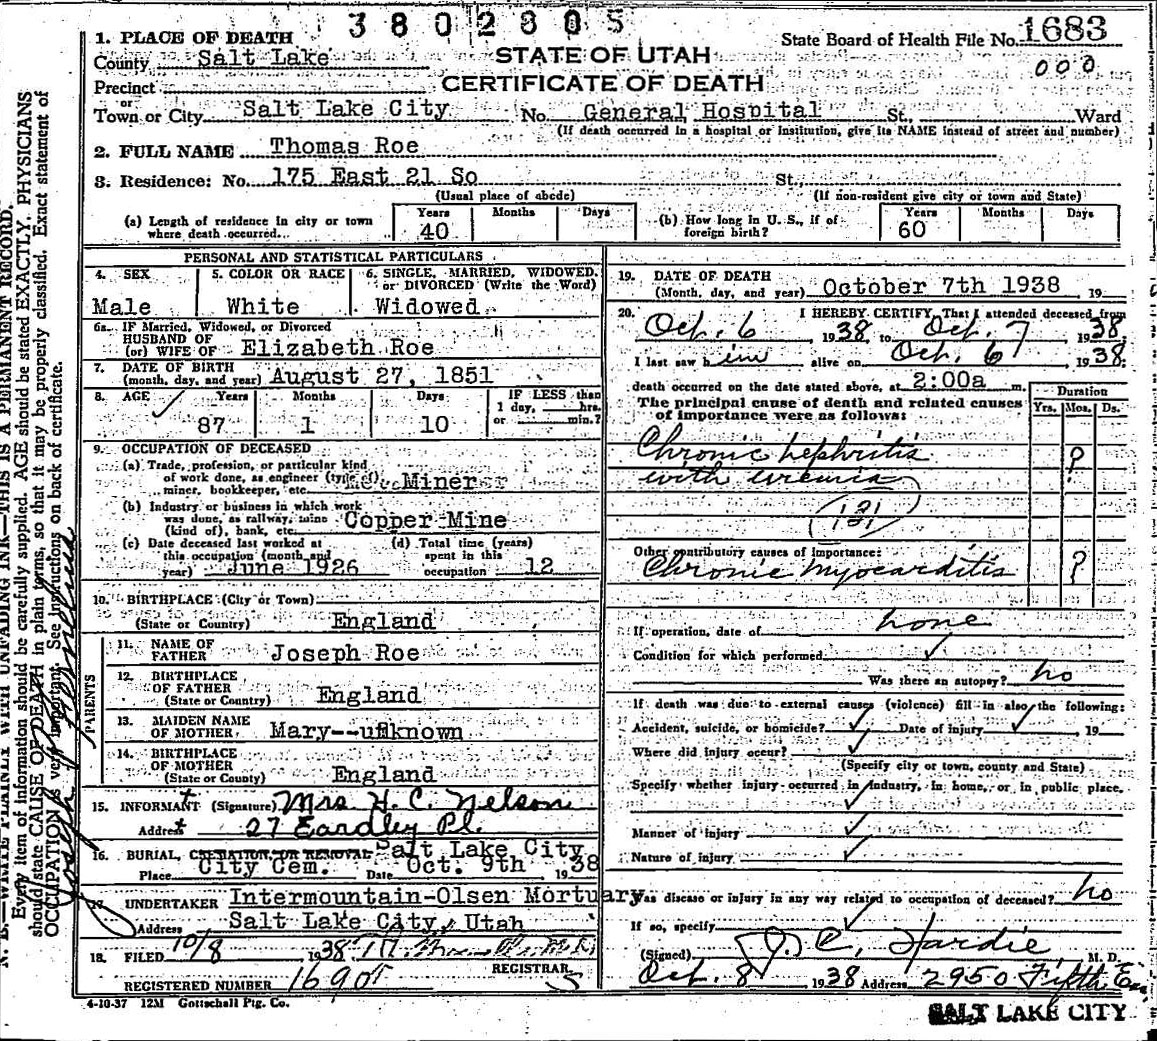 3802805
1. PLACE OF DEATH
State Board of Health File No. 1683
County Salt Lake
STATE OF UTAH
000
Precinct
CERTIFICATE OF DEATH
or
Town or City Salt Lake City No. General Hospital St., Ward
(If death occurred in a hospital or institution, give its NAME instead of street and number)
2. FULL NAME Thomas Roe
3. Residence: No. 175 East 21 So St.,
(Usual place of abode) (If non-resident give city or town and State)
(a) Length of residence in city or town where death occurred... Years 40 Months Days
(b) How long in U. S., if of foreign birth? Years 60 Months Days
PERSONAL AND STATISTICAL PARTICULARS
4. SEX Male
5. COLOR OR RACE White
6. SINGLE, MARRIED, WIDOWED, or DIVORCED (Write the Word) Widowed
6a. IF Married, Widowed, or Divorced
HUSBAND OF
(or) WIFE OF Elizabeth Roe
7. DATE OF BIRTH
(month, day, and year) August 27, 1851
8. AGE Years 87 Months 1 Days 10 IF LESS than 1 day, hrs. or min.?
9. OCCUPATION OF DECEASED
(a) Trade, profession, or particular kind
of work done, as engineer (type of) Miner
miner, bookkeeper, etc.
(b) Industry or business in which work
was done, as railway, mine Copper Mine
(kind of), bank, etc.
(c) Date deceased last worked at
this occupation (month and
year) June 1926
(d) Total time (years)
spent in this
occupation 12
10. BIRTHPLACE (City or Town)
(State or Country) England
PARENTS
11. NAME OF
FATHER Joseph Roe
12. BIRTHPLACE
OF FATHER
(State or Country) England
13. MAIDEN NAME
OF MOTHER Mary--unknown
14. BIRTHPLACE
OF MOTHER
(State or County) England
15. INFORMANT (Signature) Mrs H. C. Nelson
Address 27 Eardley Pl.
16. BURIAL, CREMATION, OR REMOVAL Salt Lake City
Place City Cem. Date Oct. 9th 1938
17. UNDERTAKER Intermountain-Olsen Mortuary
Address Salt Lake City, Utah
18. FILED 10/8 1938
REGISTRAR
REGISTERED NUMBER 1690
4-10-37 12M Gottschall Ptg. Co.
19. DATE OF DEATH
(Month, day, and year) October 7th 1938, 19
20. I HEREBY CERTIFY, That I attended deceased from
Oct. 6, 1938, to Oct. 7, 1938,
I last saw him alive on Oct. 6, 1938;
death occurred on the date stated above, at 2:00a m.
The principal cause of death and related causes
of importance were as follows:
Duration
Yrs. Mos. Ds.
Chronic nephritis ?
with uremia
(131)
Other contributory causes of importance:
Chronic Myocarditis ?
If operation, date of none
Condition for which performed
Was there an autopsy? no
If death was due to external causes (violence) fill in also the following:
Accident, suicide, or homicide? Date of injury 19
Where did injury occur?
(Specify city or town, county and State)
Specify whether injury occurred in industry, in home, or in public place.
Manner of injury
Nature of injury
Was disease or injury in any way related to occupation of deceased? no
If so, specify
(Signed) J. C. Hardie M. D.
Oct. 8 1938 Address 2950 Fifth E
SALT LAKE CITY
N. B.—WRITE PLAINLY WITH UNFADING INK—THIS IS A PERMANENT RECORD.
Every item of information should be carefully supplied. AGE should be stated EXACTLY. PHYSICIANS
should state CAUSE OF DEATH in plain terms, so that it may be properly classified. Exact statement of
OCCUPATION is very important. See instructions on back of certificate.